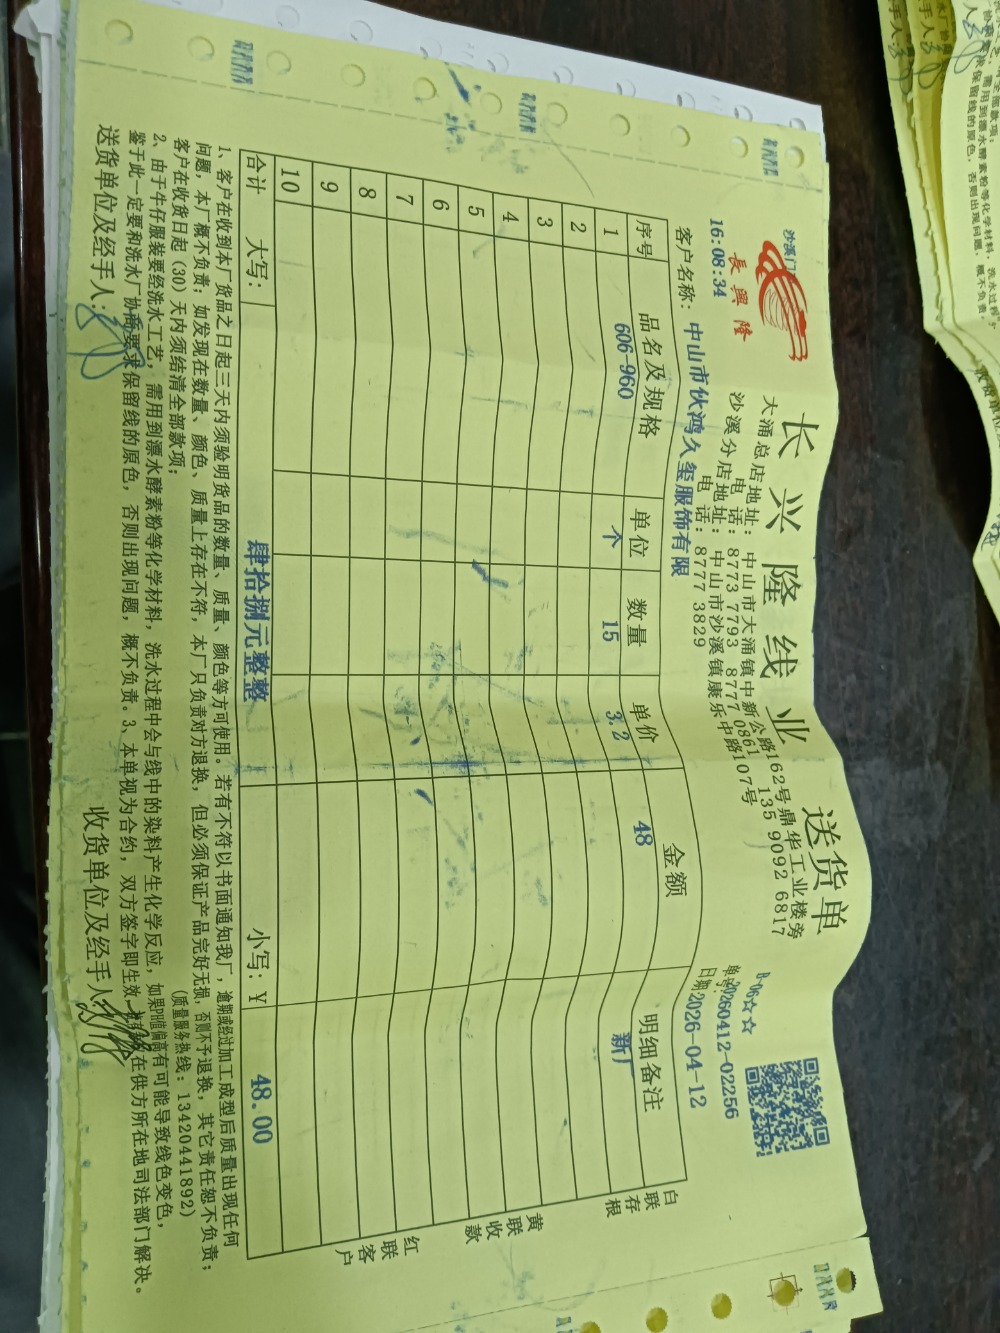 沙溪门
長興隆
16:08:34
长兴隆线业
送货单
大涌总店地址：中山市大涌镇中新公路162号鼎华工业楼旁
电话：8773 7793 8777 0861 135 9092 6817
沙溪分店地址：中山市沙溪镇康乐中路107号
电话：8777 3829
B-06☆☆
单号:20260412-02256
日期:2026-04-12
客户名称：中山市伙鸿久玺服饰有限
序号 品名及规格 单位 数量 单价 金额 明细备注
1 606-960 个 15 3.2 48 新厂
2
3
4
5
6
7
8
9
10
合计 大写：肆拾捌元整整 小写：￥ 48.00
白联存根
黄联收款
红联客户
1、客户在收到本厂货品之日起三天内须验明货品的数量、质量、颜色等方可使用。若有不符以书面通知我厂，逾期或经过加工成型后质量出现任何
问题，本厂概不负责；如发现在数量、颜色、质量上存在不符，本厂只负责对方退换，但必须保证产品完好无损，否则不予退换，其它责任恕不负责；
客户在收货日起（30）天内须结清全部款项； （质量服务热线：13420441892）
2、由于牛仔服装要经洗水工艺，需用到漂水酵素粉等化学材料，洗水过程中会与线中的染料产生化学反应，如果PH值偏高有可能导致线色变色，
鉴于此一定要和洗水厂协商要求保留线的原色，否则出现问题，概不负责。3、本单视为合约，双方签字即生效，在供方所在地司法部门解决。
送货单位及经手人： 收货单位及经手人：